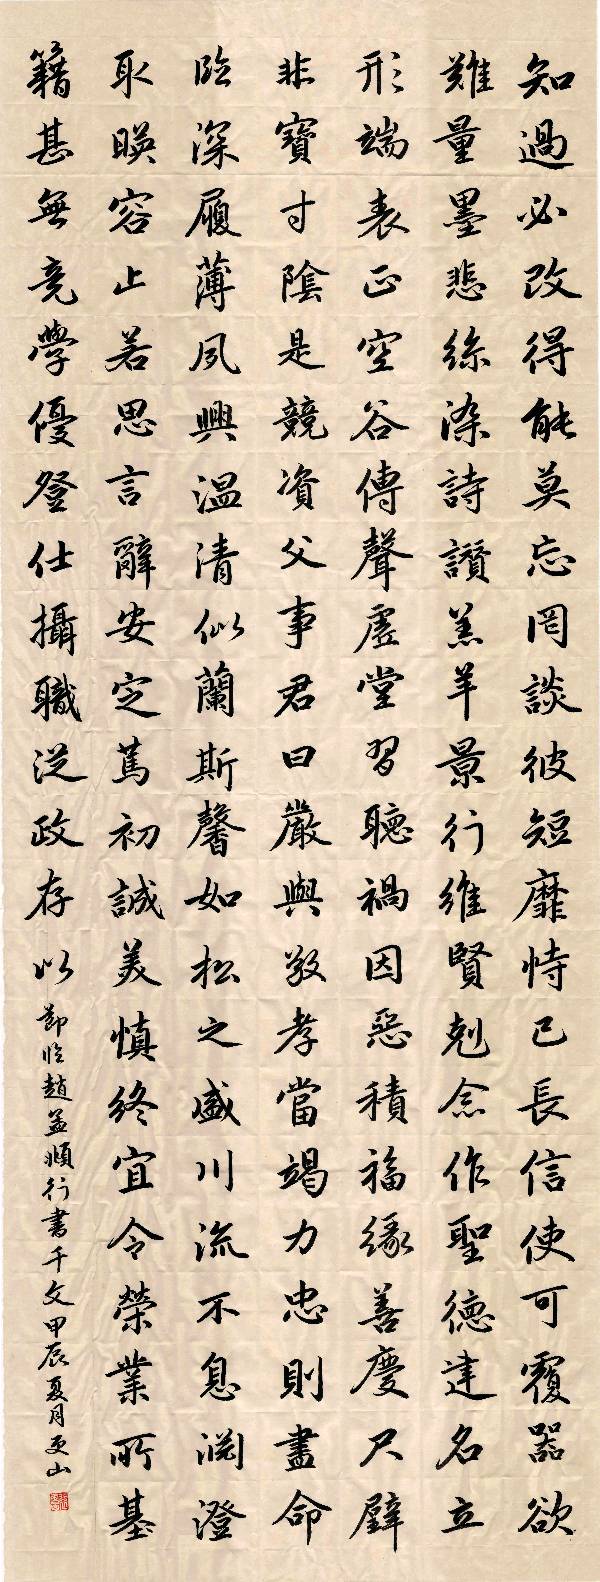 知過必改得能莫忘罔談彼短靡恃己長信使可覆器欲
難量墨悲絲染詩讚羔羊景行維賢剋念作聖德建名立
形端表正空谷傳聲虛堂習聽禍因惡積福緣善慶尺璧
非寶寸陰是競資父事君曰嚴與敬孝當竭力忠則盡命
臨深履薄夙興温清似蘭斯馨如松之盛川流不息淵澄
取暎容止若思言辭安定篤初誠美慎終宜令榮業所基
籍甚無竟學優登仕攝職從政存以
節臨趙孟頫行書千文甲辰夏月更山